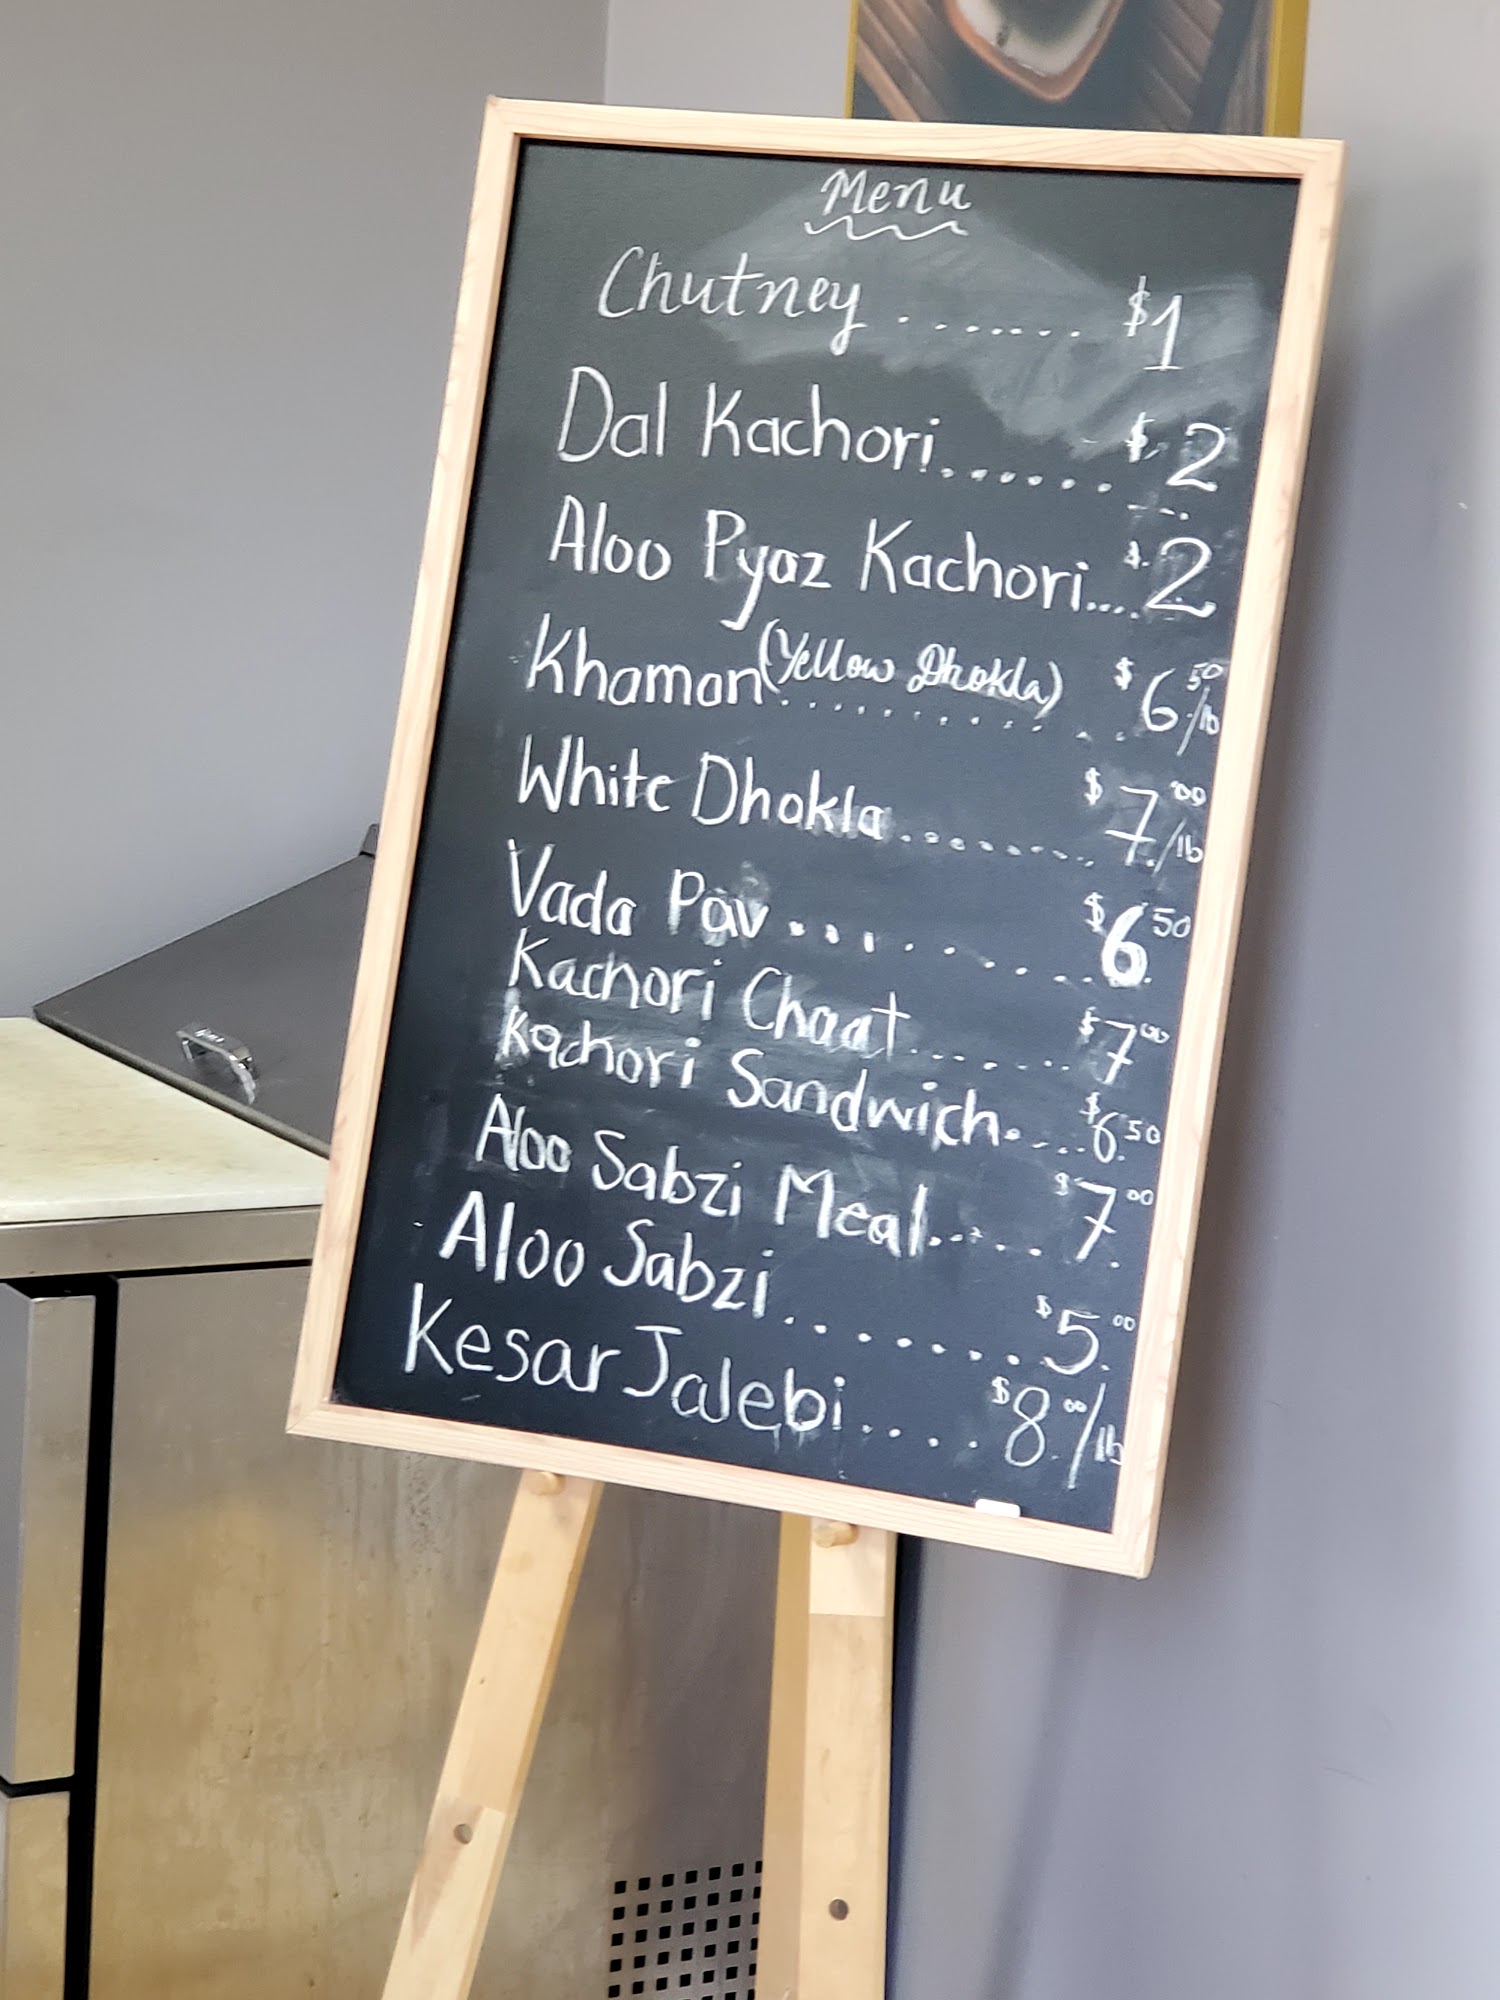 Menu
Chutney ....... $1
Dal Kachori ...... $2
Aloo Pyaz Kachori.... $2
Khaman (Yellow Dhokla) ............ $6.50/lb
White Dhokla ......... $7.00/lb
Vada Pav ........... $6.50
Kachori Chaat ....... $7.00
Kachori Sandwich..... $6.50
Aloo Sabzi Meal...... $7.00
Aloo Sabzi ......... $5.00
Kesar Jalebi .... $8.00/lb